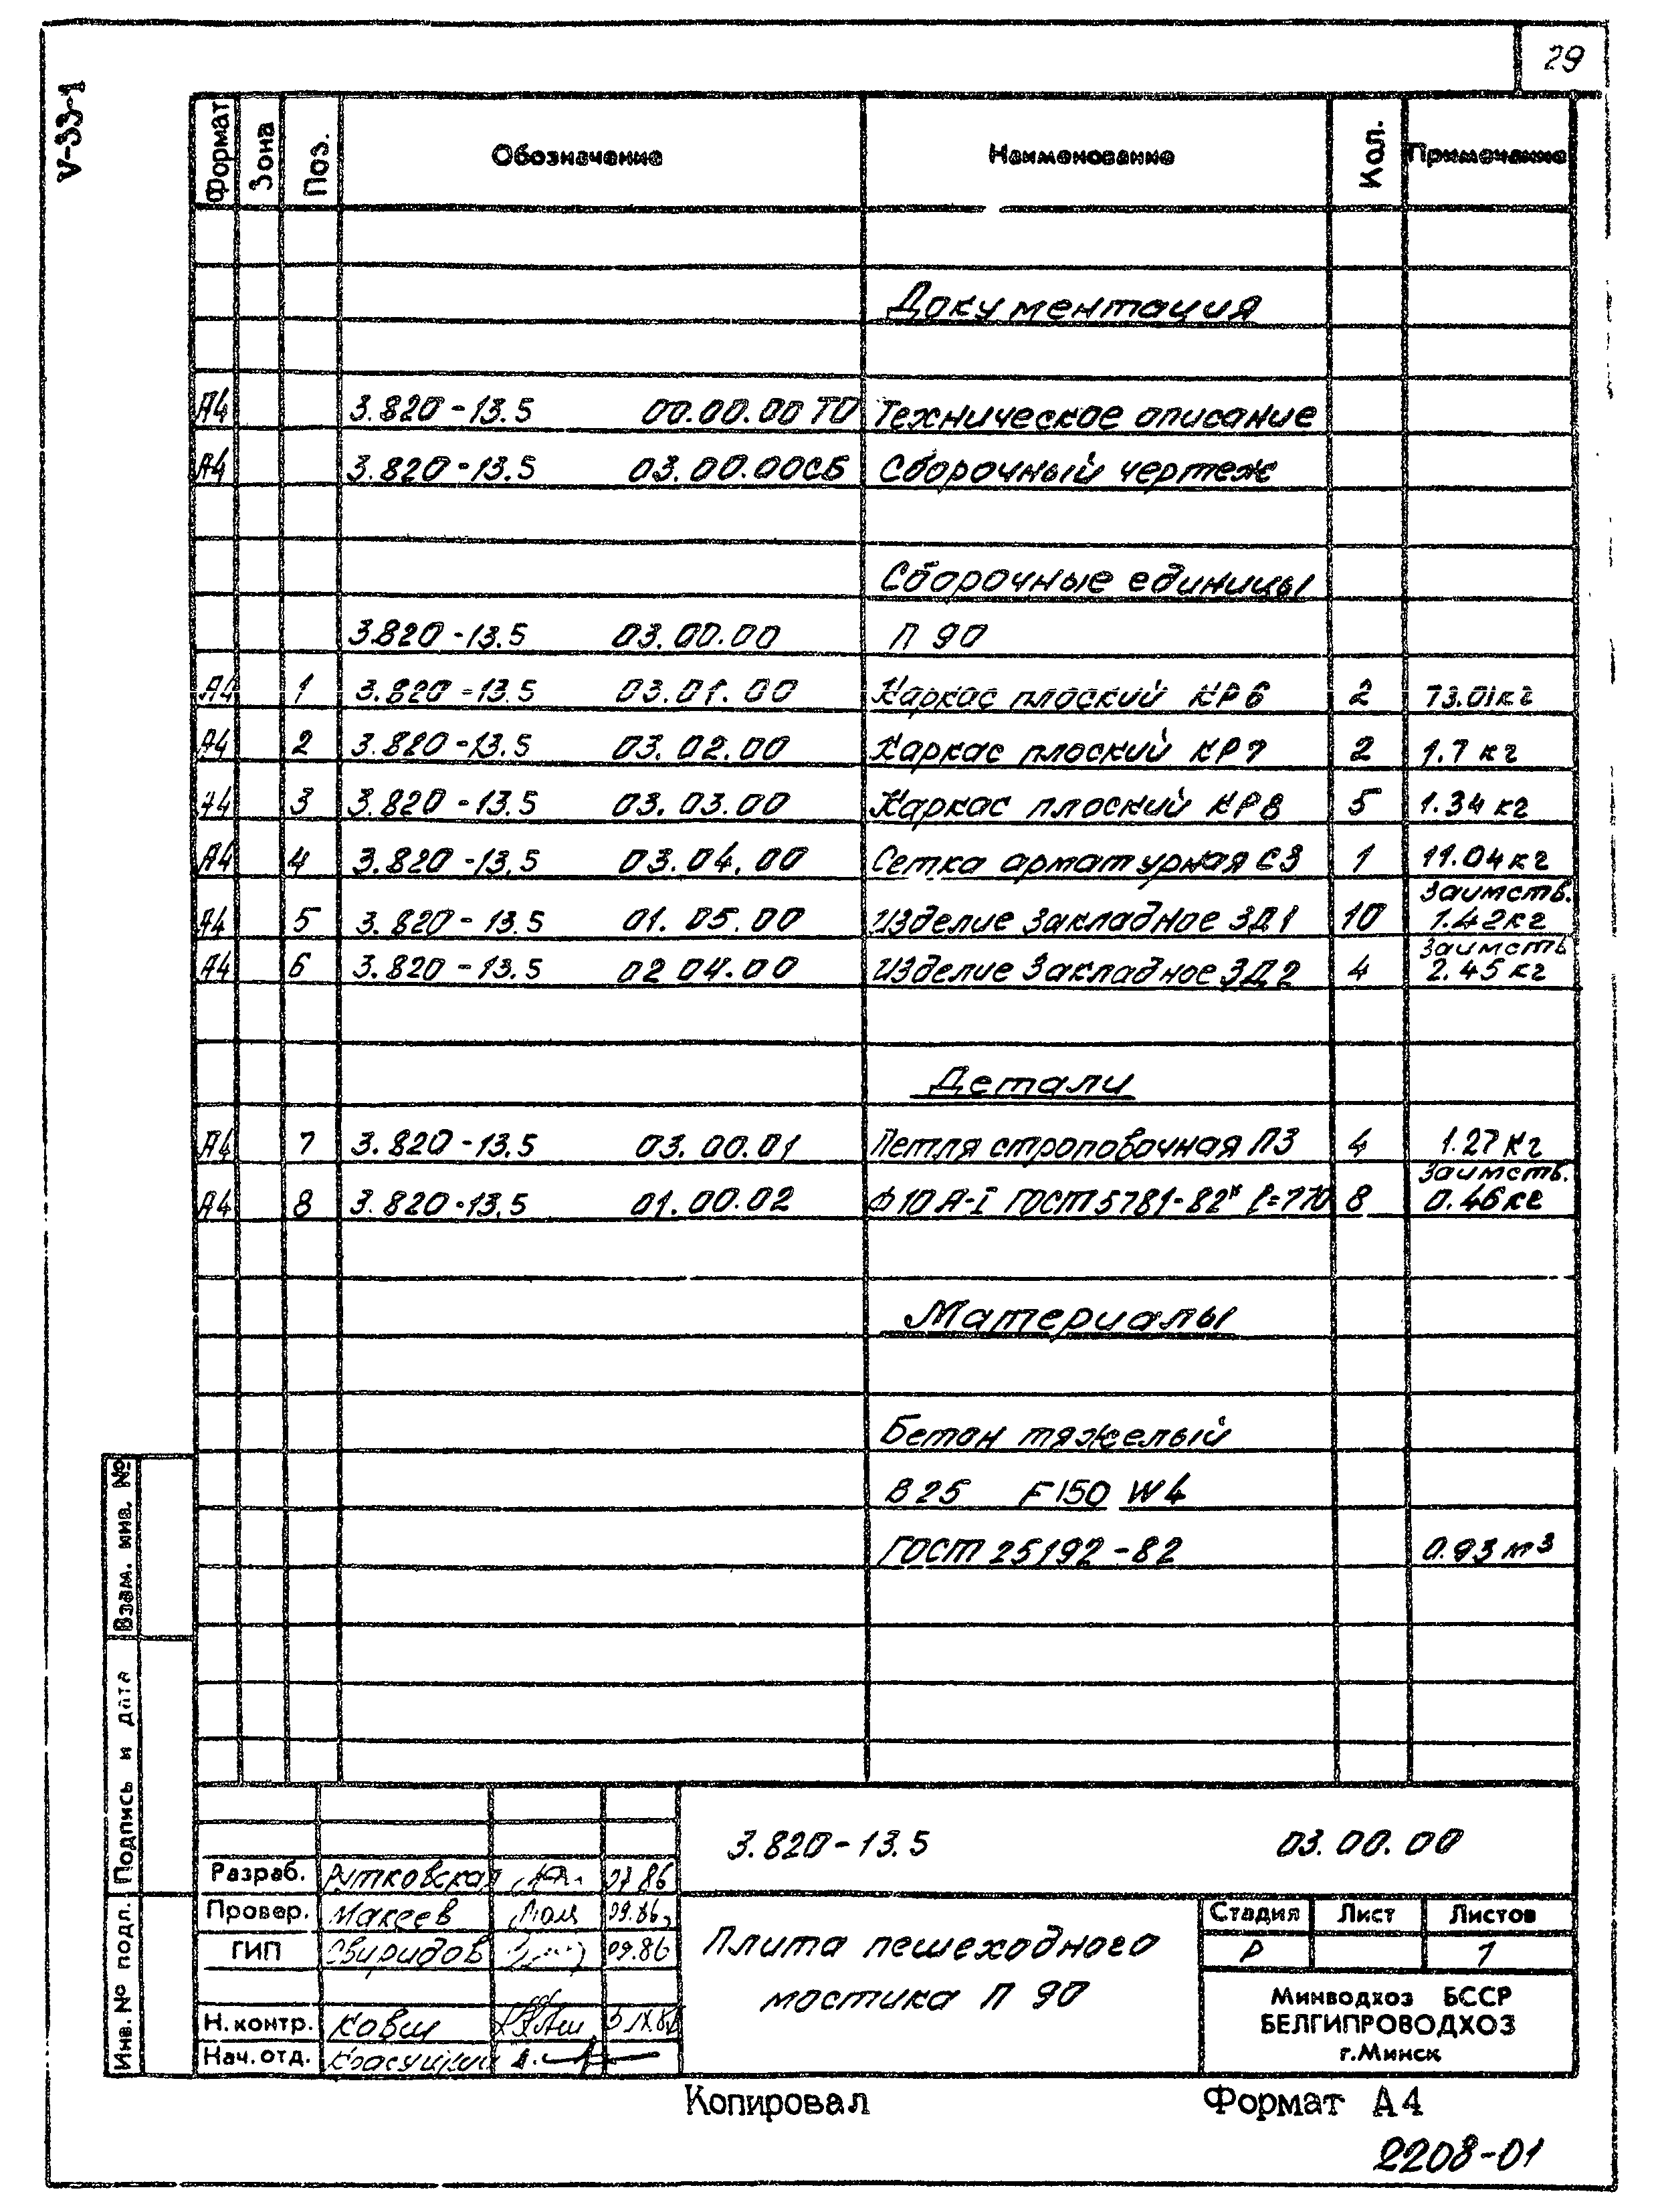 29
V-33-1
Формат Зона Поз. Обозначение Наименование Кол. Примечание
Документация
А4 3.820-13.5 00.00.00 ТО Техническое описание
А4 3.820-13.5 03.00.00СБ Сборочный чертеж
Сборочные единицы
3.820-13.5 03.00.00 П 90
А4 1 3.820-13.5 03.01.00 Каркас плоский КР6 2 73.01кг
А4 2 3.820-13.5 03.02.00 Каркас плоский КР7 2 1.7 кг
А4 3 3.820-13.5 03.03.00 Каркас плоский КР8 5 1.34 кг
А4 4 3.820-13.5 03.04.00 Сетка арматурная С3 1 11.04кг
Заимств.
А4 5 3.820-13.5 01.05.00 Изделие закладное ЗД1 10 1.42кг
Заимств
А4 6 3.820-13.5 02 04.00 Изделие закладное ЗД2 4 2.45 кг
Детали
А4 7 3.820-13.5 03.00.01 Петля строповочная П3 4 1.27 кг
Заимств.
А4 8 3.820-13.5 01.00.02 Ф10 А-I ГОСТ 5781-82* ℓ=770 8 0.46кг
Материалы
Бетон тяжелый
В25 F150 W4
ГОСТ 25192-82 0.93 м³
Взам. инв. №
Подпись и дата
Инв. № подл.
3.820-13.5 03.00.00
Разраб. Рутковская 07.86
Провер. Макеев 09.86
ГИП Свиридов 09.86
Н. контр. Ковш
Нач. отд.
Плита пешеходного
мостика П 90
Стадия Лист Листов
Р 1
Минводхоз БССР
БЕЛГИПРОВОДХОЗ
г.Минск
Копировал Формат А4
2208-01